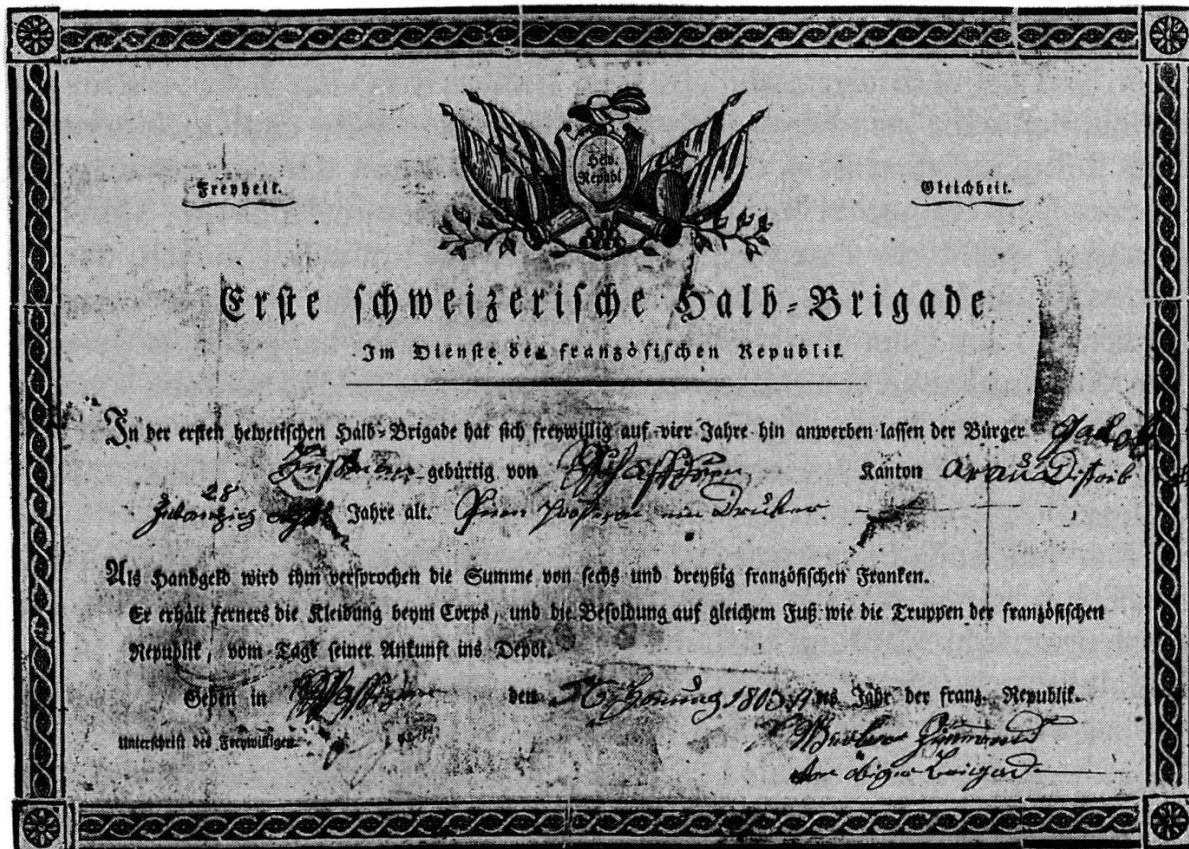 Freyheit.
Helv.
Republ.
Gleichheit.
Erste schweizerische Halb-Brigade
Im Dienste der französischen Republik
In der ersten helvetischen Halb-Brigade hat sich freywillig auf vier Jahre hin anwerben lassen der Bürger Jakob
gebürtig von Kanton Arau Distrik
28
Jahre alt. Druker
Als Handgeld wird ihm versprochen die Summe von sechs und dreyßig französischen Franken.
Er erhält ferners die Kleidung beym Corps, und die Besoldung auf gleichem Fuß wie die Truppen der französischen
Republik, vom Tage seiner Ankunft ins Depot.
Geben in den Hornung 1803 Jahr der franz. Republik.
Unterschrift des Freywilligen.